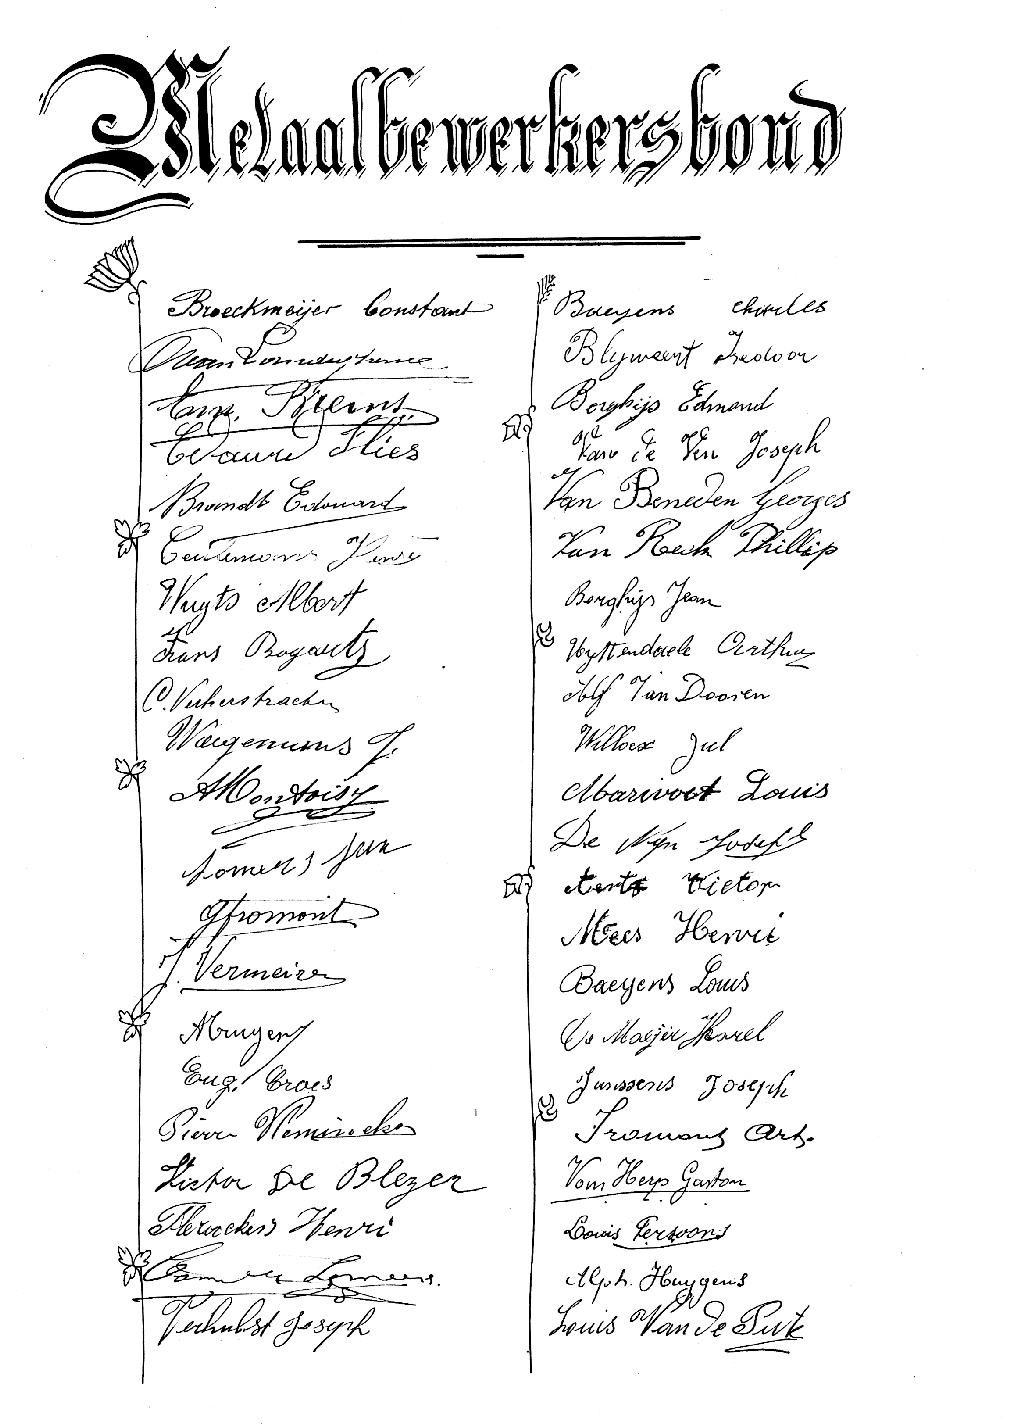 Metaalbewerkersbond
Broeckmeijer Constant
Brandt Edouard
Wuyts Albert
Frans Bogaerts
C. Verherstraeten
Waegemans J.
A Montoisy
Somers Jan
G fromont
J. Vermeiren
A Huygens
Eug. Croes
Pierre
Victor De Blezer
Henri
Verhulst Joseph
Baeyens Charles
Blijweert Isedoor
Borghijs Edmond
Van de Ven Joseph
Van Beneden Georges
Van Reck Phillip
Borghijs Jean
Uyttendaele Arthur
Alf Van Dooren
Willocx Jul
Marivoet Louis
De Nyn Josef
Aerts Victor
Mees Henri
Baeyens Louis
De Maejer Karel
Janssens Joseph
Fromont Art.
Van Herp Gaston
Louis Persoons
Alph. Huygens
Louis Van de Putte